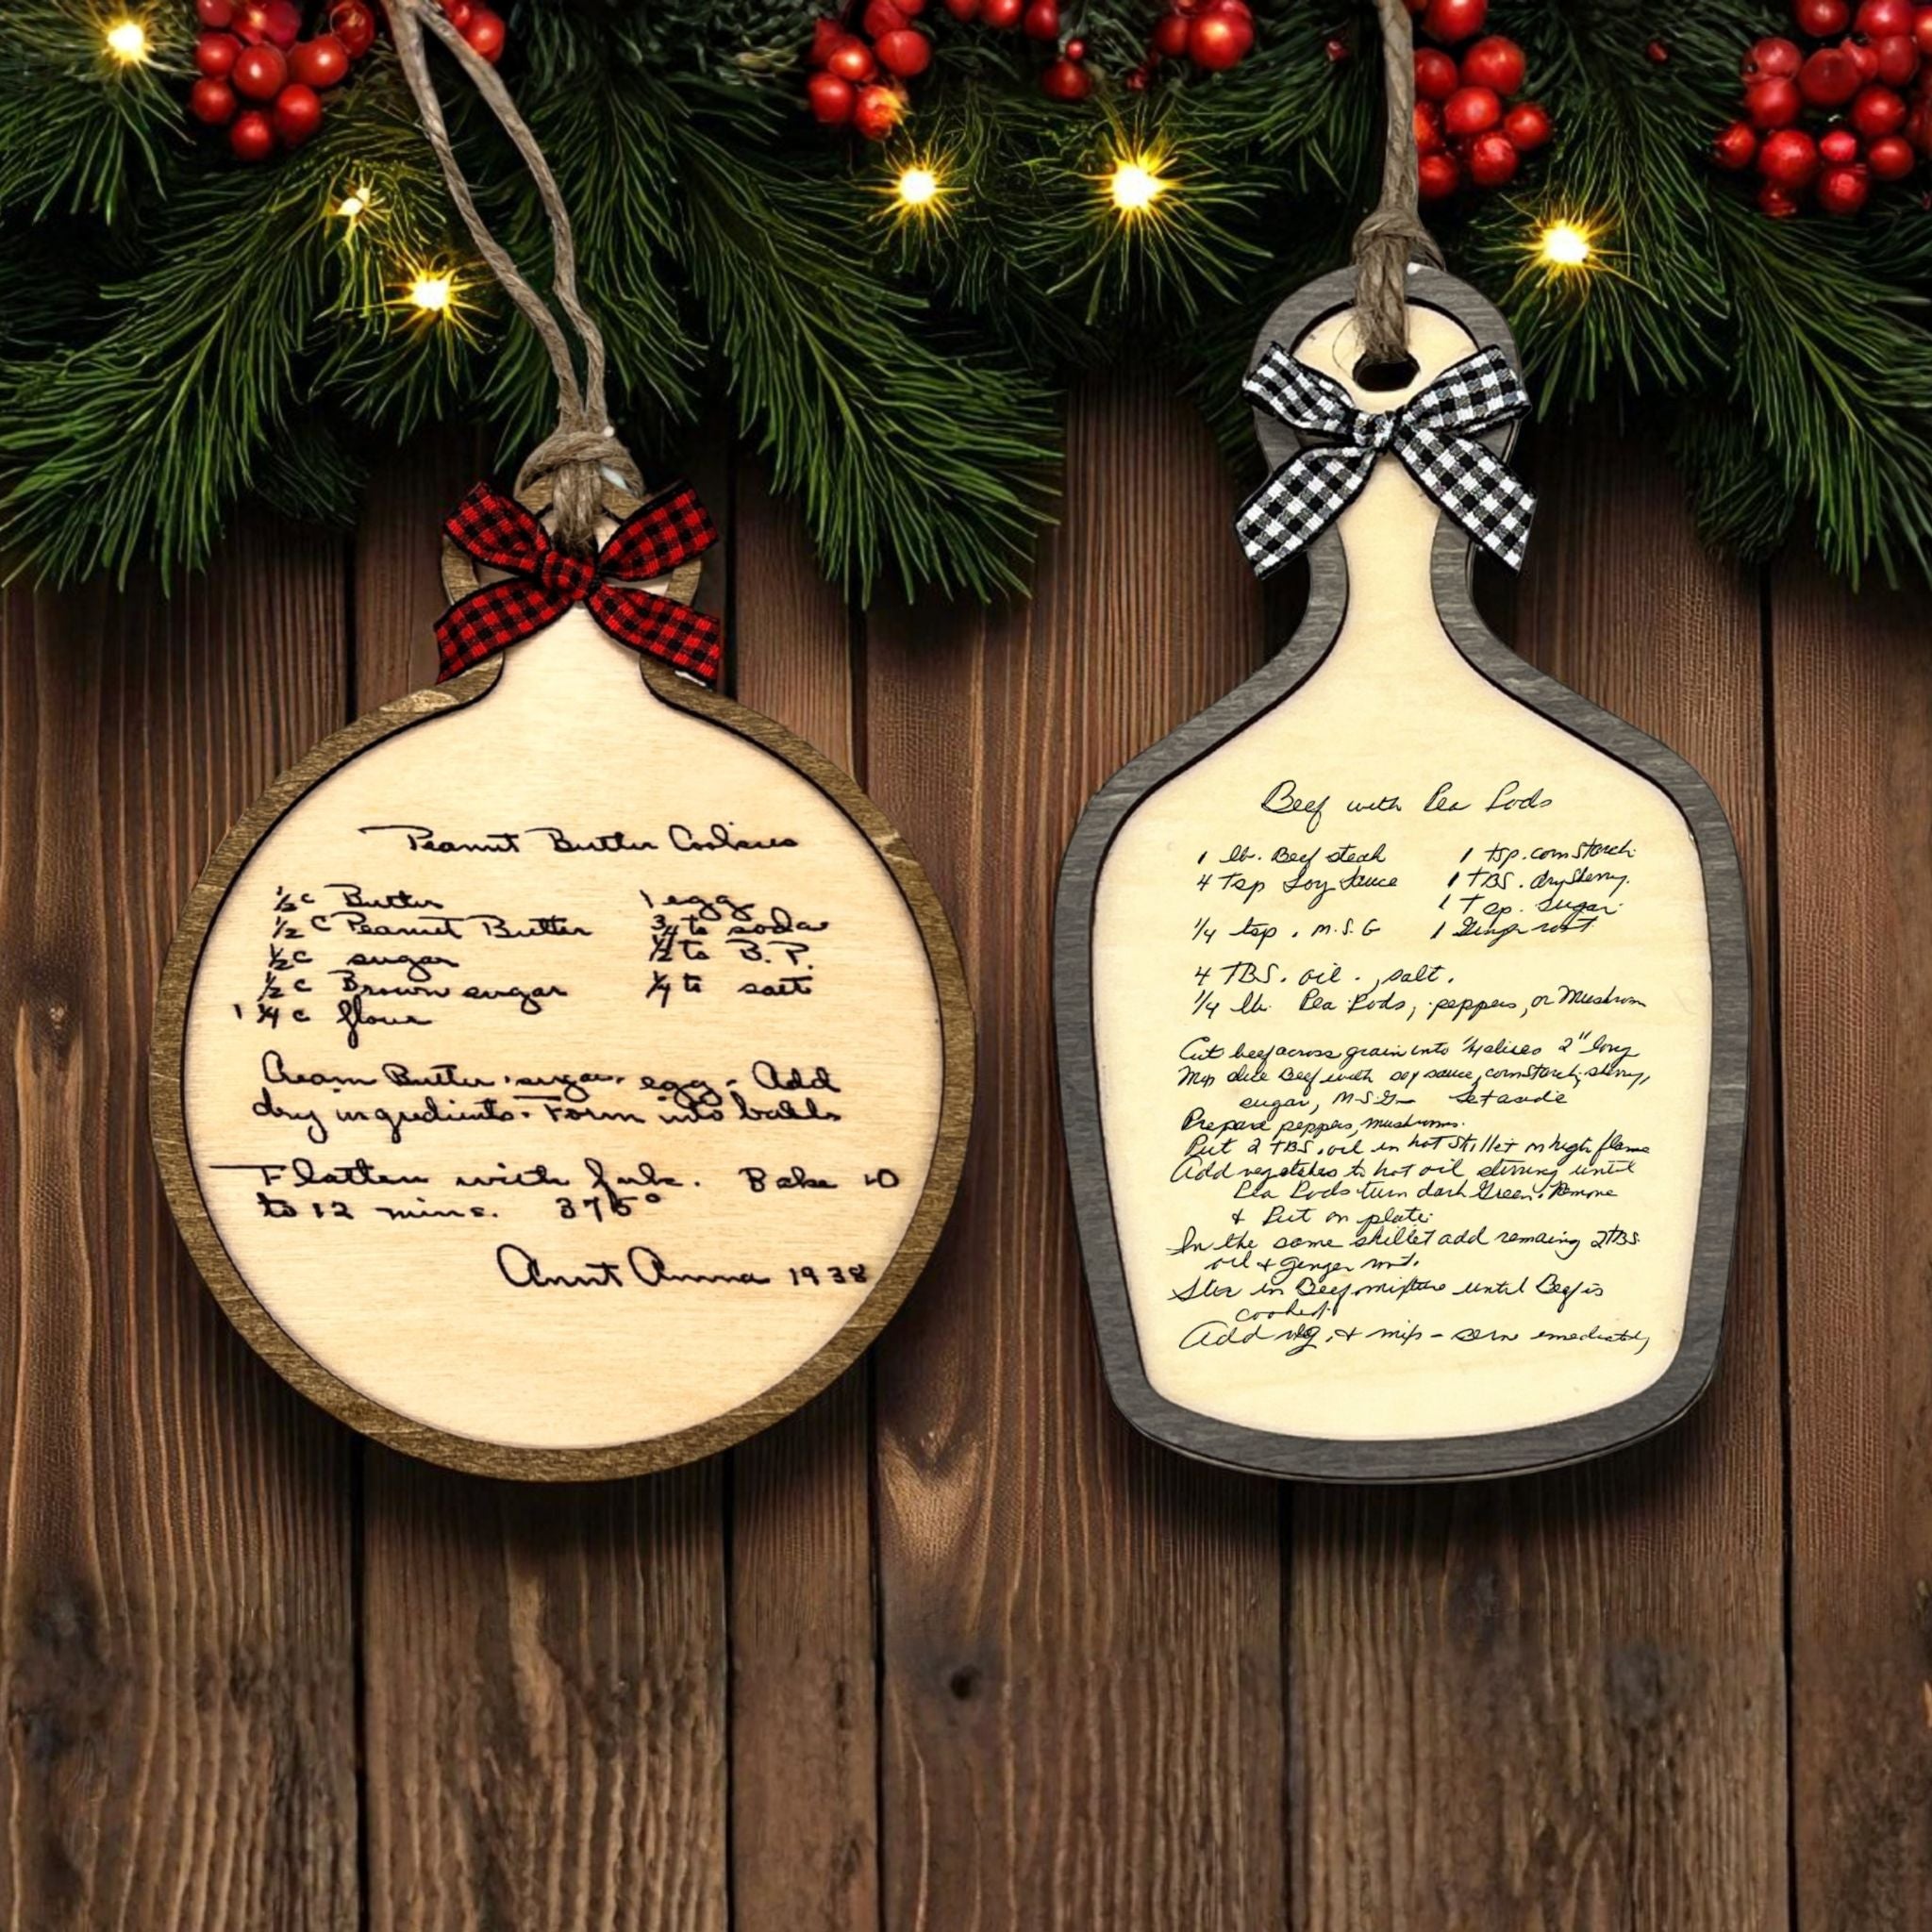 Peanut Butter Cookies
½ c Butter
½ c Peanut Butter
½ c sugar
½ c Brown sugar
1 ¼ c flour
1 egg
¾ ts soda
½ ts B. P.
¼ ts salt
Cream Butter, sugar, egg - Add
dry ingredients. Form into balls
Flatten with fork. Bake 10
to 12 mins. 375°
Aunt Anna 1938
Beef with Pea Pods
1 lb. Beef steak
4 Tsp Soy Sauce
¼ tsp. M.S.G
1 tsp. cornstarch
1 TBS. dry Sherry.
1 Tsp. Sugar
1 Ginger root
4 TBS. oil., salt.
¼ lb. Pea Pods, peppers, or Mushroom
Cut beef across grain into ¼ slices 2" long
Mix slice Beef with soy sauce, cornstarch, sherry,
sugar, M-S-G- Set aside
Prepare peppers, mushrooms.
Put 2 TBS. oil in hot skillet on high flame
Add vegetables to hot oil stirring until
Pea Pods turn dark Green. Remove
& Put on plate.
In the same skillet add remaing 2TBS
oil & ginger root.
Stir in Beef mixture until Beef is
cooked.
Add veg. & mix - serve emediately